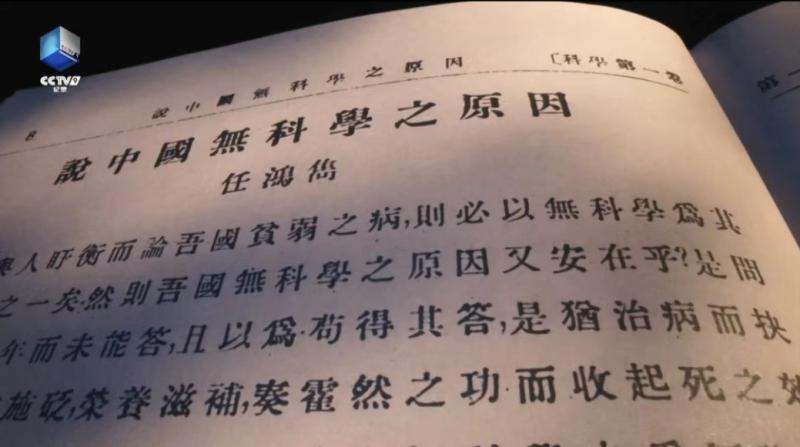 CCTV9
纪录
8 說中國無科學之原因 〔科學第一卷
第二
說中國無科學之原因
任鴻雋
人盱衡而論吾國貧弱之病,則必以無科學爲其
之一矣.然則吾國無科學之原因又安在乎?是問
年而未能答,且以爲.苟得其答,是猶治病而抉
施砭,榮養滋補,奏霍然之功而收起死之效